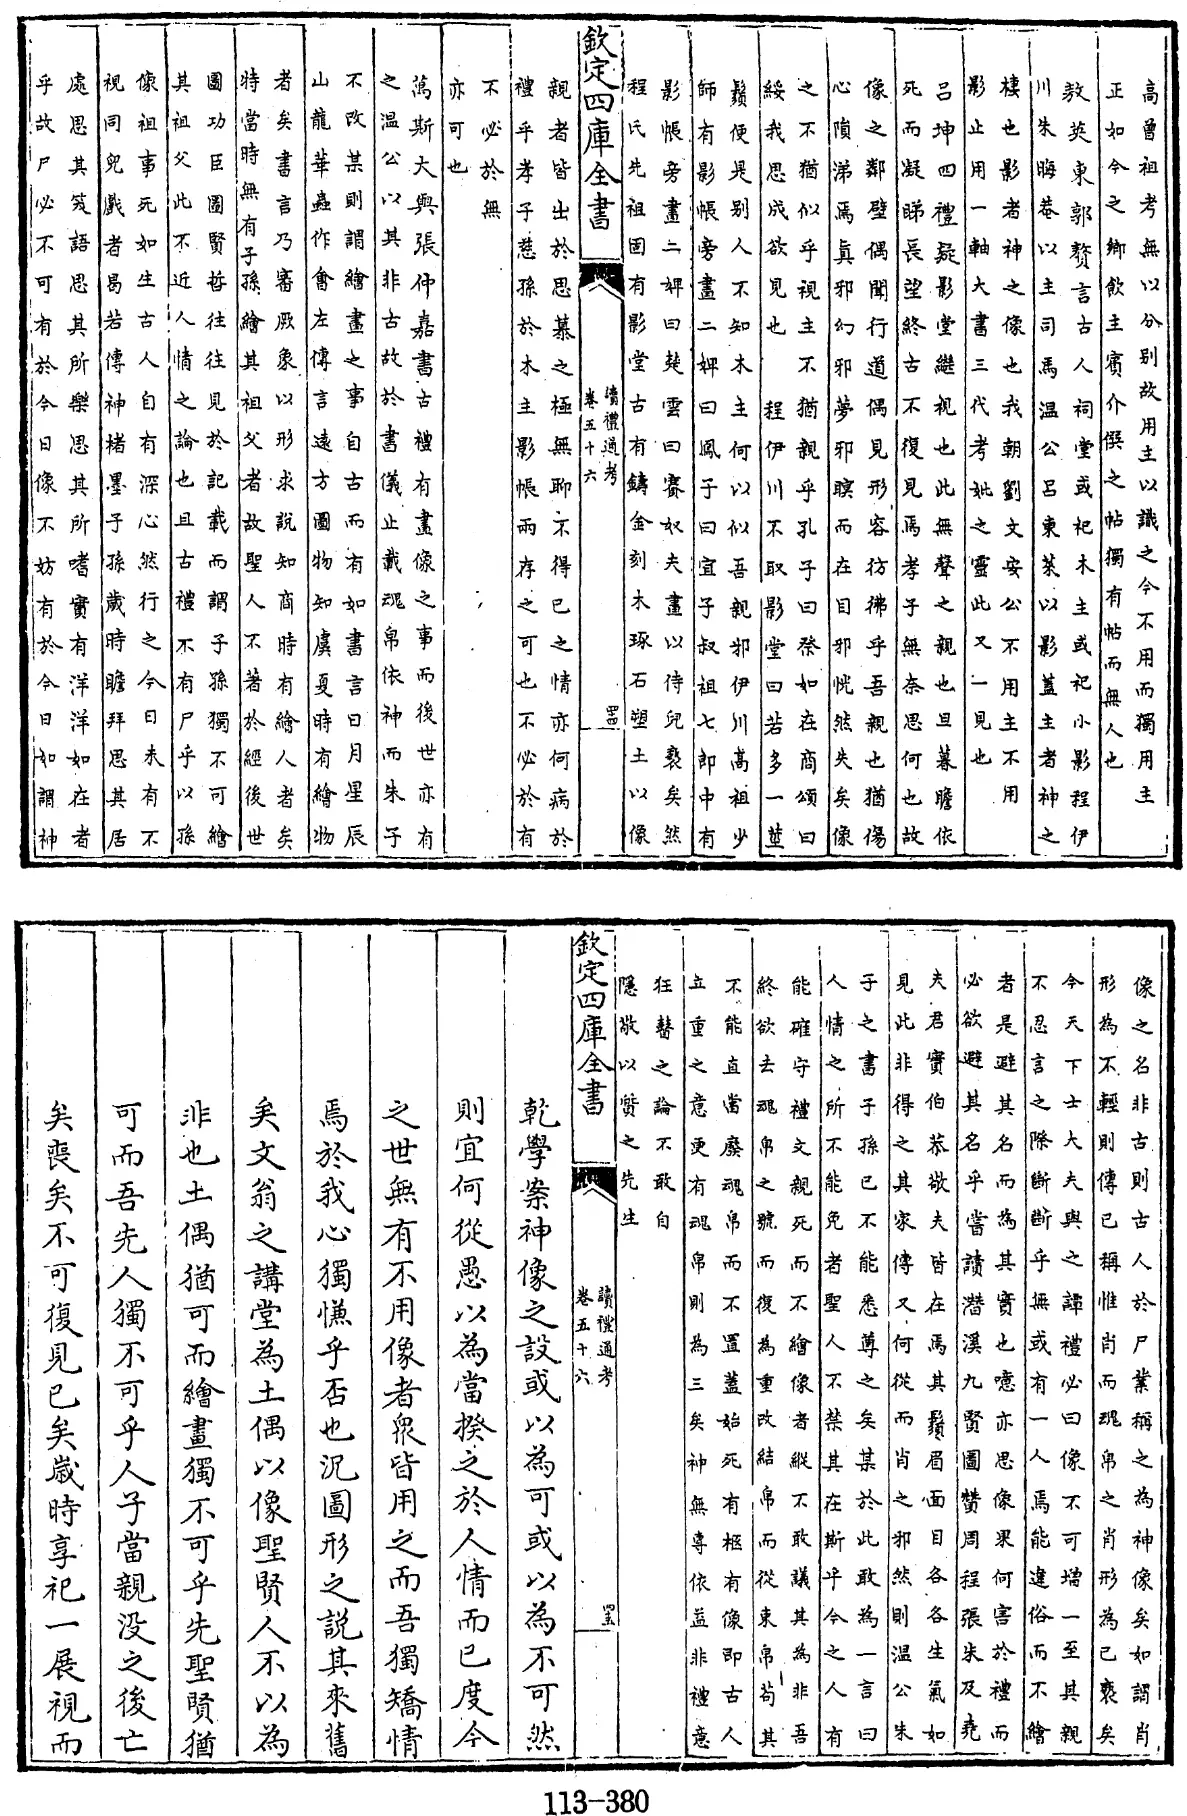 高曾祖考無以分別故用主以識之今不用而獨用主
正如今之鄉飲主賓介僎之帖獨有帖而無人也
敖英東郭贅言古人祠堂或祀木主或祀小影程伊
川朱晦菴以主司馬溫公呂東萊以影蓋主者神之
棲也影者神之像也我朝劉文安公不用主不用
影止用一軸大書三代考妣之靈此又一見也
呂坤四禮疑影堂繼視也此無聲之親也旦暮瞻依
死而凝睇長望終古不復見焉孝子無奈思何也故
像之鄰壁偶聞行道偶見形容彷彿乎吾親也猶傷
心隕涕焉真邪幻邪夢邪瞑而在目邪恍然失矣像
之不猶似乎視主不猶親乎孔子曰祭如在商頌曰
綏我思成欲見也 程伊川不取影堂曰若多一莖
鬚便是別人不知木主何以似吾親邪伊川高祖少
師有影帳旁畫二婢曰鳳子曰宜子叔祖七郎中有
影帳旁畫二婢曰楚雲曰賽奴夫畫以侍兒褻矣然
程氏先祖固有影堂古有鑄金刻木琢石塑土以像
欽定四庫全書
讀禮通考
卷五十六
四四
親者皆出於思慕之極無聊不得已之情亦何病於
禮乎孝子慈孫於木主影帳兩存之可也不必於有
不必於無
亦可也
萬斯大與張仲嘉書古禮有畫像之事而後世亦有
之温公以其非古故於書儀止載魂帛依神而朱子
不改某則謂繪畫之事自古而有如書言日月星辰
山龍華蟲作會左傳言遠方圖物知虞夏時有繪物
者矣書言乃審厥象以形求說知商時有繪人者矣
特當時無有子孫繪其祖父者故聖人不著於經後世
圖功臣圖賢哲往往見於記載而謂子孫獨不可繪
其祖父此不近人情之論也且古禮不有尸乎以孫
像祖事死如生古人自有深心然行之今日未有不
視同兒戲者曷若傳神楮墨子孫歲時瞻拜思其居
處思其笑語思其所樂思其所嗜實有洋洋如在者
乎故尸必不可有於今日像不妨有於今日如謂神
像之名非古則古人於尸業稱之為神像矣如謂肖
形為不輕則傳已稱惟肖而魂帛之肖形為已褻矣
今天下士大夫與之譚禮必曰像不可增一至其親
不忍言之際斷斷乎無或有一人焉能違俗而不繪
者是避其名而為其實也噫亦思像果何害於禮而
必欲避其名乎嘗讀潛溪九賢圖贊周程張朱及堯
夫君實伯恭敬夫皆在焉其鬚眉面目各各生氣如
見此非得之其家傳又何從而肖之邪然則溫公朱
子之書子孫已不能悉尊之矣某於此敢為一言曰
人情之所不能免者聖人不禁其在斯乎今之人有
能確守禮文親死而不繪像者縱不敢議其為非吾
終欲去魂帛之號而復為重改結帛而從束帛苟其
不能直當廢魂帛而不置蓋始死有柩有像即古人
立重之意更有魂帛則為三矣神無專依益非禮意
狂瞽之論不敢自
隱敬以質之先生
欽定四庫全書
讀禮通考
卷五十六
四五
乾學案神像之設或以為可或以為不可然
則宜何從愚以為當揆之於人情而已度今
之世無有不用像者衆皆用之而吾獨矯情
焉於我心獨慊乎否也況圖形之說其來舊
矣文翁之講堂為土偶以像聖賢人不以為
非也土偶猶可而繪畫獨不可乎先聖賢猶
可而吾先人獨不可乎人子當親没之後亡
矣喪矣不可復見已矣歲時享祀一展視而
113-380